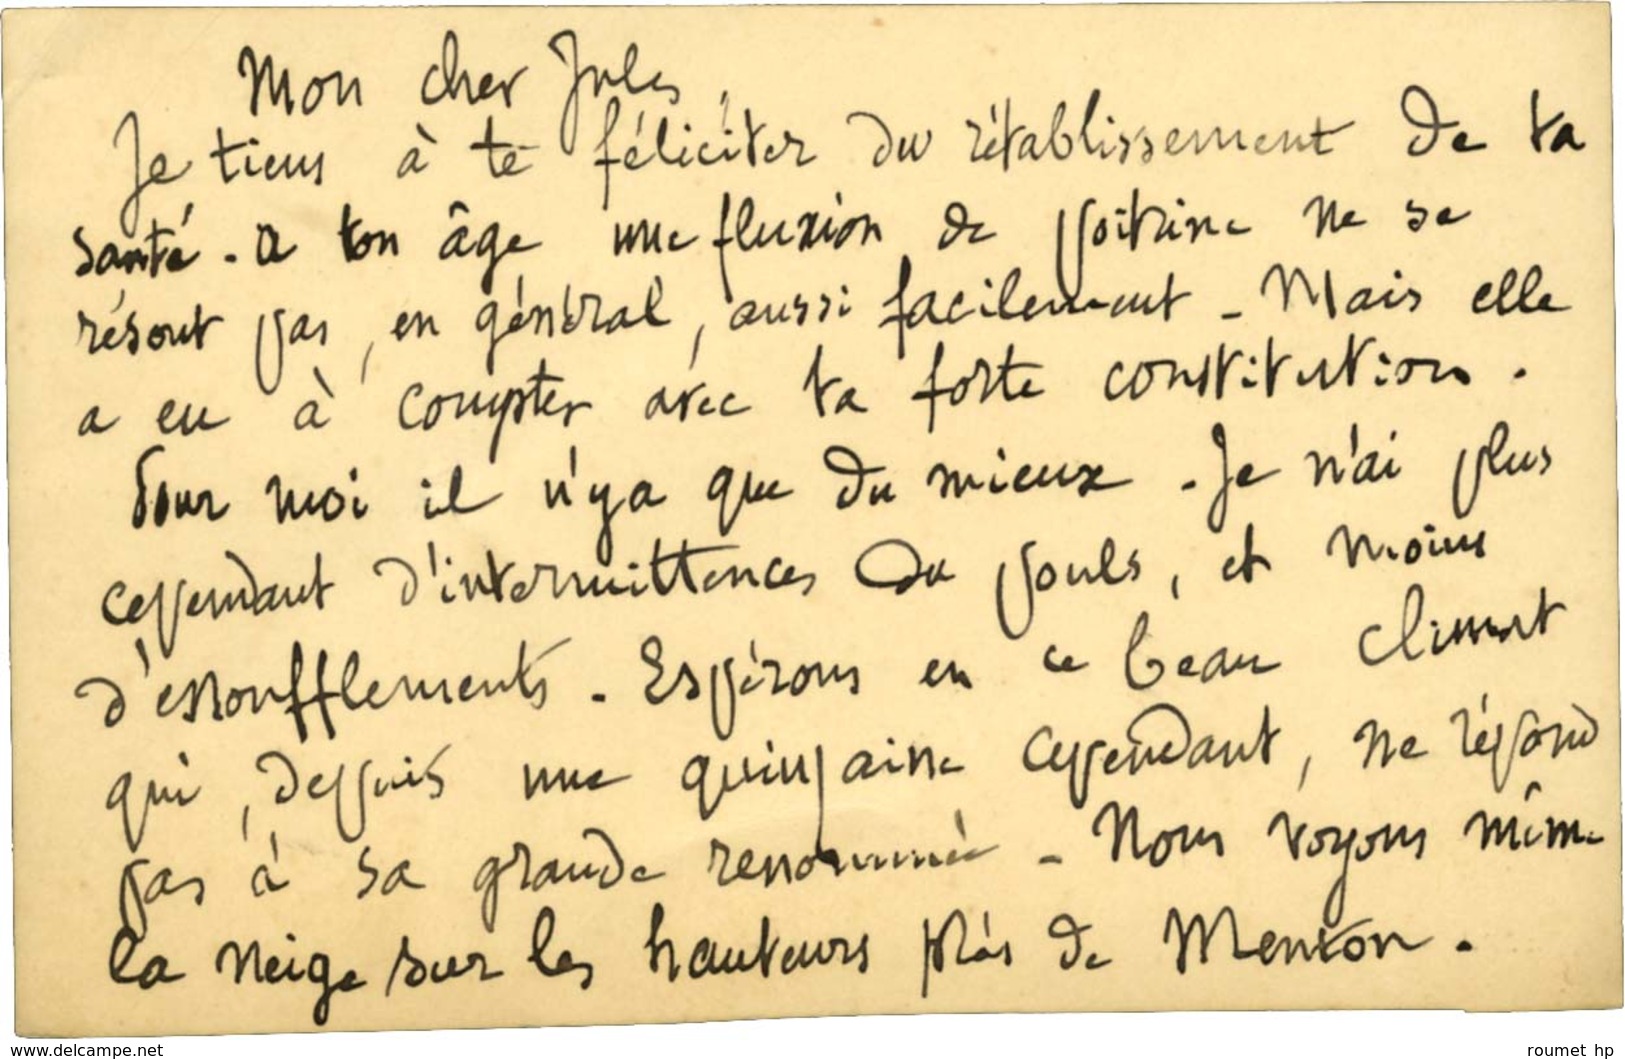 Mon cher Jules,
Je tiens à te féliciter du rétablissement de ta
santé. a ton âge une fluxion de poitrine ne se
résout pas, en général, aussi facilement - Mais elle
a eu à compter avec ta forte constitution.
Pour moi il n'y a que du mieux. Je n'ai plus
cependant d'intermittences du pouls, et moins
d'essoufflements. Espérons en ce beau climat
qui, depuis une quinzaine cependant, ne répond
pas à sa grande renommée - Nous voyons même
la neige sur les hauteurs près de Menton.
www.delcampe.net
roumet hp